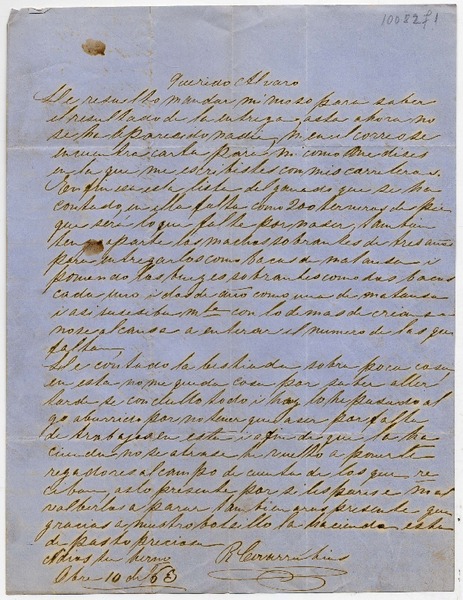 10082 71
Querido Alvaro
He resuelto mandar mi moso para saber
el resultado de la entrega, asta ahora no
se he parecido nadie, ni en el correo se
encuentra carta para mi como me dises
en la que me escribistes con mis carreteras.
Confinesa esta lista del ganado que se ha
contado, en ella falta como 200 terneras de pie
que será lo que falta por naser, tambien
tengo aparte los machos sobrantes de tres años
para entregarlos como bacas de matansa i
poniendo los bueyes sobrantes como dos bacas
cada uno i dos de año como una de matansa
i asi susesibamte con lo demas de crianza
no se alcansa a enterar el numero de las que
faltan.
He contado la bestiada sobra poca cosa
en esta no me queda cosa por saber aller
tarde se conclullo todo i hoy lo he pasado al
go aburrido por no tener que aser por falta
de trabajo en esta i a fin de que la ha
cienda no se atrase he vuelto a ponerte
regadores al campo de cuenta de los que re
ciban, aslo presente por si les paresi mal
volberlos a parar, tambien aras presente que
gracias a nuestro bolsillo la hacienda esta
de pasto preciosa
Adios tu hermo
R Covarrubias
Obre 10 de 63